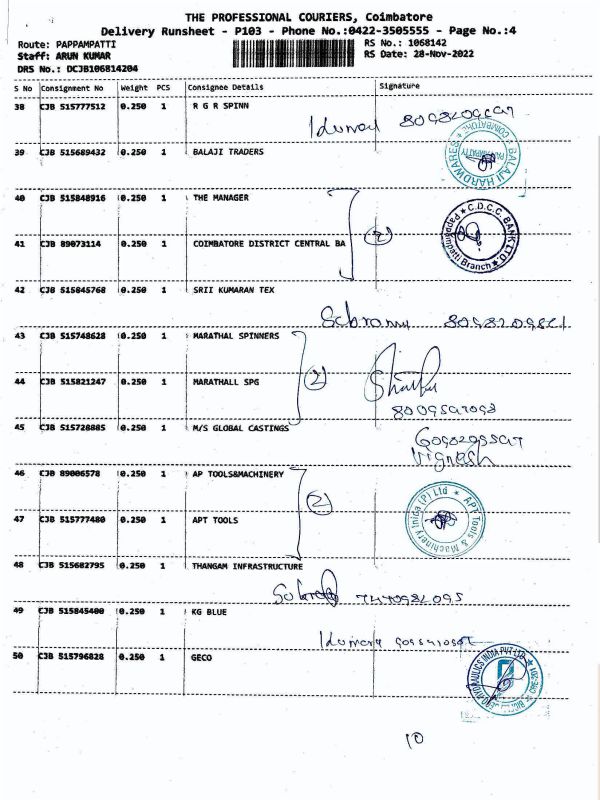 THE PROFESSIONAL COURIERS, Coimbatore
Delivery Runsheet - P103 - Phone No.:0422-3505555 - Page No.:4
Route: PAPPAMPATTI
RS No.: 1068142
Staff: ARUN KUMAR
RS Date: 28-Nov-2022
DRS No.: DCJB106814204
S No Consignment No Weight PCS Consignee Details Signature
38 CJB 515777512 0.250 1 R G R SPINN
39 CJB 515689432 0.250 1 BALAJI TRADERS
BALAJI HARDWARES COIMBATORE
40 CJB 515848916 0.250 1 THE MANAGER
41 CJB 89073114 0.250 1 COIMBATORE DISTRICT CENTRAL BA
2
C.D.C.C. BANK LTD Pappampatti Branch
42 CJB 515845768 0.250 1 SRII KUMARAN TEX
43 CJB 515748628 0.250 1 MARATHAL SPINNERS
44 CJB 515821247 0.250 1 MARATHALL SPG
2
45 CJB 515728885 0.250 1 M/S GLOBAL CASTINGS
Vignesh
46 CJB 89006578 0.250 1 AP TOOLS&MACHINERY
47 CJB 515777480 0.250 1 APT TOOLS
2
APT Tools & Machinery India (P) Ltd
48 CJB 515682795 0.250 1 THANGAM INFRASTRUCTURE
49 CJB 515845400 0.250 1 KG BLUE
50 CJB 515796828 0.250 1 GECO
HYDRAULICS INDIA PVT LTD
10